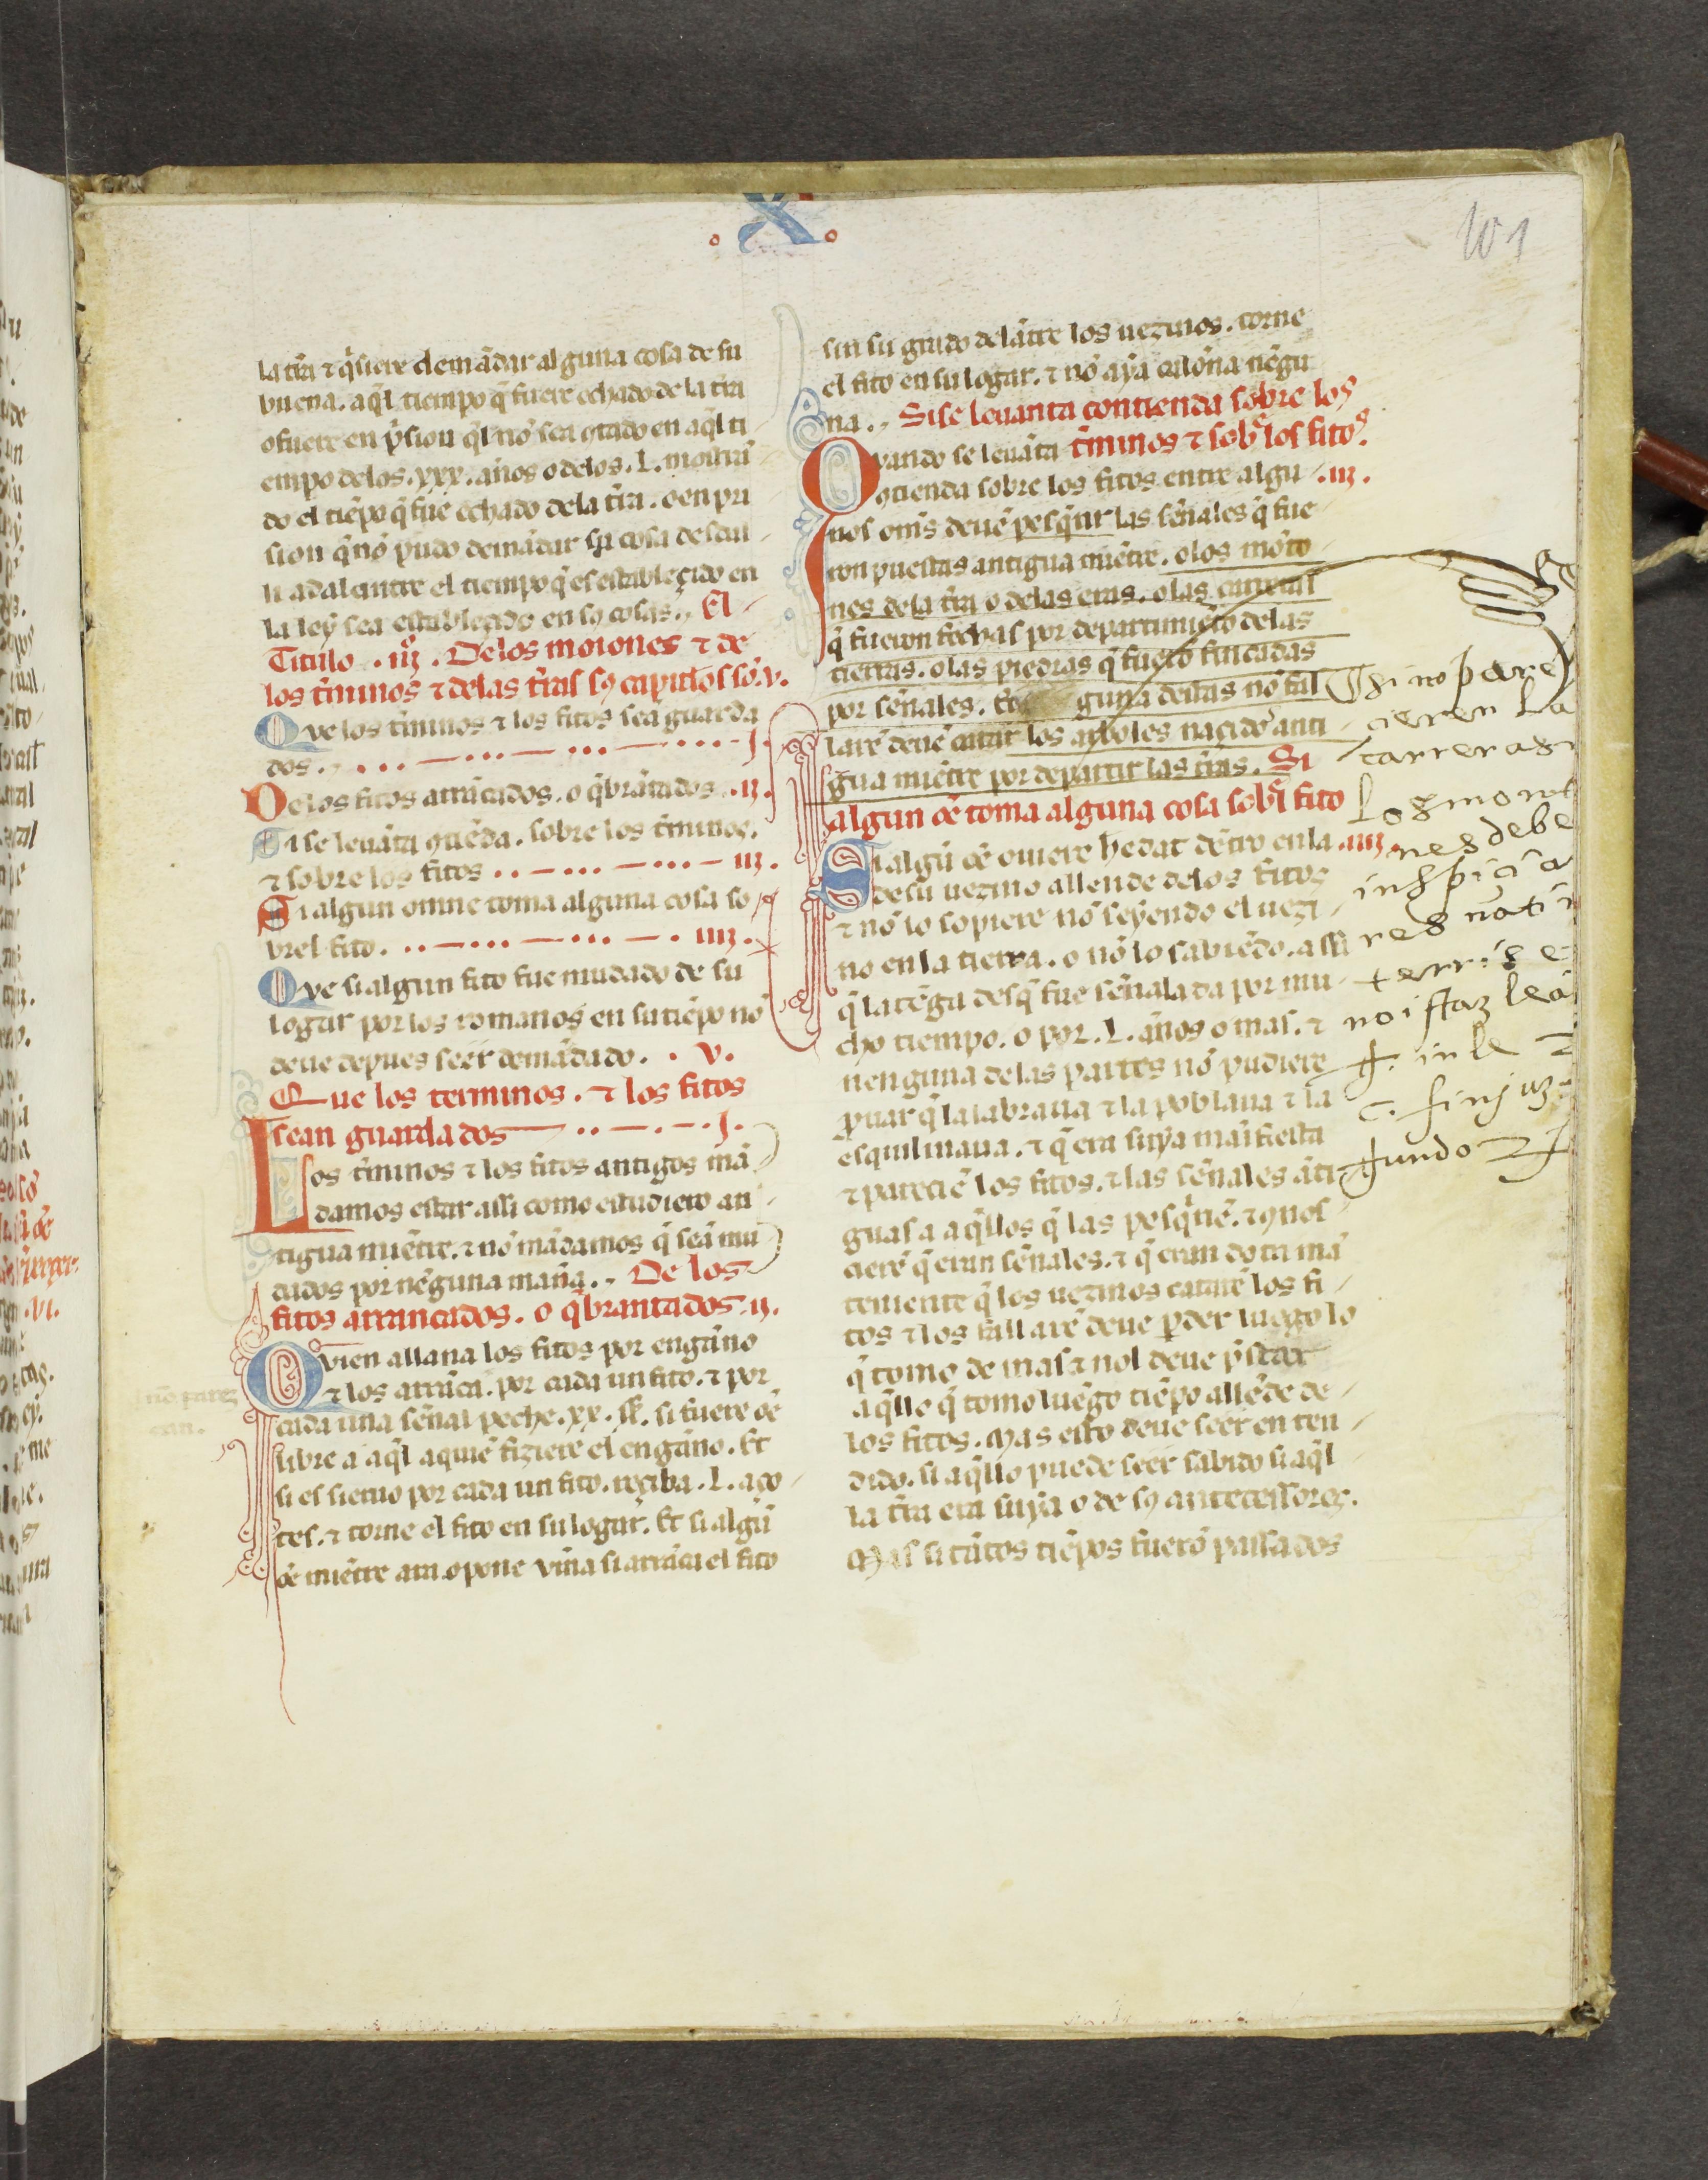 .X.
101
la tr̃a ⁊ q̃siere demãdar alguna cosa de su
buena. a q̃l tiempo q̃ fuere echado de la tr̃a
o fuere en p̃sion q̃l nõ sea ꝯtado en aq̃l ti
empo delos .xxx. años o delos .L.
do el tiẽpo q̃ fue echado dela tr̃a. o en pri
sion q̃ nõ pudo demãdar su cosa
adalantre el tiempo q̃ es estableçido en
la ley sea estableçido en sꝯ cosas. El
Titulo .iij. Delos moiones ⁊ de
los t̃minos ⁊ delas tr̃as sꝯ capitulos sõ .v.
Que los t̃minos ⁊ los fitos seã guarda
dos. j.
Delos fitos arrãcados. o q̃brãtados .ij.
Si se leuãta ꝯtiẽda. sobre los t̃minos.
⁊ sobre los fitos iij.
Si algun omne toma alguna cosa so
brel fito. iiij.
Que si algun fito fue mudado de su
logar por los romanos en su tiẽpo nõ
deue depues seer demãdado. v.
Que los terminos. ⁊ los fitos
sean guardados j.
Los t̃minos ⁊ los fitos antigos mã
damos estar assi como estudiero an
tigua miẽtre. ⁊ nõ mãdamos q̃ seã mu
dados por nẽguna mañã. De los
fitos arrancados. o q̃brantados .ij.
Quien allana los fitos por engãno
⁊ los arrãca. por cada un fito. ⁊ por
cada una señal peche .xx. sł. si fuere oẽ
libre a aq̃l aquiẽ fiziere el engãno. Et
si es sieruo por cada un fito. reçiba .L. aço
tes. ⁊ torne el fito en su logar. Et si algũ
oẽ miẽtre ara o pone viña si arrãca el fito
sin su grado delãtre los uezinos. torne
el fito en su logar. ⁊ nõ aya calõna nẽgu
na. Si se leuanta contienda sobre los
t̃minos ⁊ sob̃ los fitos. .iij.
Quando se leuãta
ꝯtienda sobre los fitos entre algu
nos om̃s deuẽ pesq̃rir las señales q̃ fue
ron puestas antigua miẽtre. o los mõto
nes dela tr̃a o delas eras. o las carreras
q̃ fueron fechas por departimiẽto delas
tierras. o las piedras q̃ fuerõ fincadas
por señales. guna destas nõ fal
larẽ deuẽ catar los arboles naçidos anti
gua miẽtre por departir las tr̃as. Si
algun oẽ toma alguna cosa sob̃l fito
Si algũ oẽ ouiere hedat dẽtro en la .iiij.
de su uezino allende delos fitos
⁊ nõ lo sopiere nõ seyendo el uezi
no en la tierra. o nõ lo sabiẽdo. assi
q̃ la tẽga desq̃ fue señalada por mu
cho tiempo. o por .L. años o mas. ⁊
nenguna delas partes nõ pudiere
p̃uar q̃ la labraua ⁊ la poblaua ⁊ la
esquilmaua. ⁊ q̃ era suya manifiesta
⁊ pareciẽ los fitos. ⁊ las señales ãti
guas a aq̃llos q̃ las pesq̃riẽ. ⁊ ꝯnos
cierẽ q̃ eran señales. ⁊ q̃ eran
q̃ los uezinos catarẽ los fi
tos ⁊ los fallarẽ deue p̃der luego lo
q̃ tomo de mas ⁊ nol deue p̃star
aq̃llo q̃ tomo luẽgo tiẽpo allẽde de
los fitos. Mas esto deue seer en ten
dido. si aq̃llo puede seer sabido si aq̃l
la tr̃a era suya o de sꝯ antecessores.
Mas si tãtos tiẽpos fuerõ passados
si no pare
cieren la
carreras
los monto
nes debe
inspicia
res nati
terris
fundo